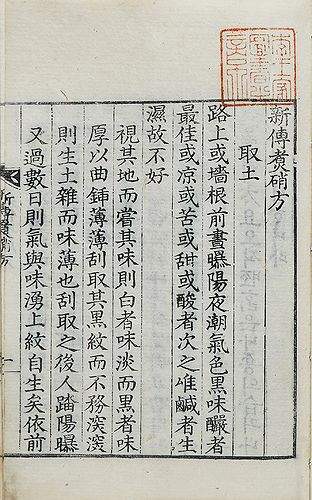 新傳煑硝方
取土
路上或墻根前晝曝陽夜潮氣色黑味釅者
最佳或凉或苦或甜或酸者次之唯鹹者生
濕故不好
視其地而嘗其味則白者味淡而黑者味
厚以曲鍤薄薄刮取其黑紋而不務深深
則生土雜而味薄也刮取之後人踏陽曝
又過數日則氣與味湧上紋自生矣依前
新傳煑硝方
一